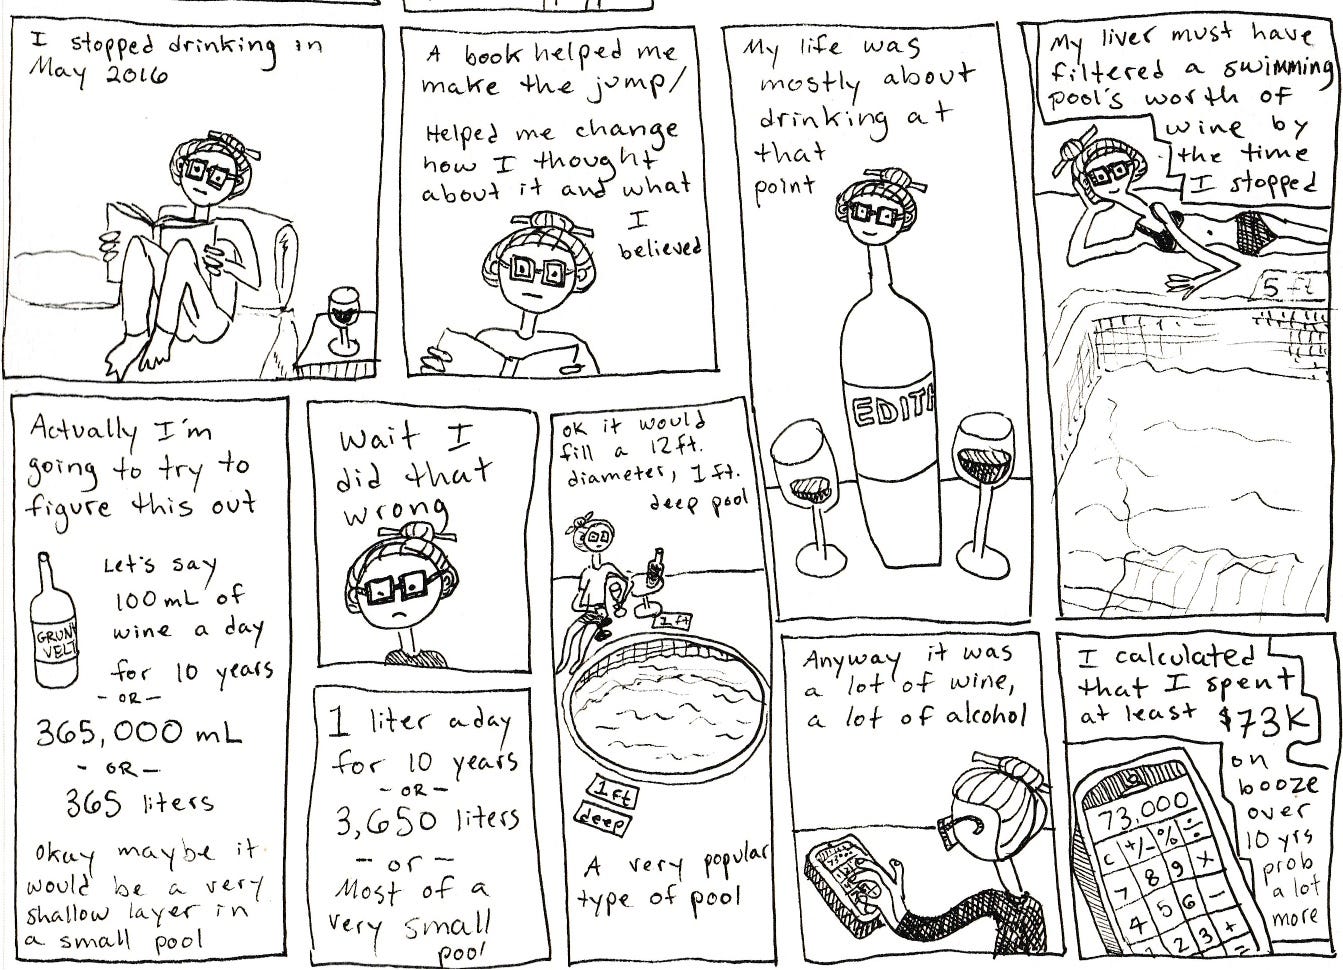 I stopped drinking in
May 2016
A book helped me
make the jump/
Helped me change
how I thought
about it and what
I
believed
My life was
mostly about
drinking at
that
point
EDITH
My liver must have
filtered a swimming
pool's worth of
wine by
the time
I stopped
5 ft
Actually I'm
going to try to
figure this out
Let's say
100 mL of
wine a day
for 10 years
GRUN
VELT
- OR -
365,000 mL
- OR -
365 liters
Okay maybe it
would be a very
shallow layer in
a small pool
Wait I
did that
wrong
1 liter a day
for 10 years
- OR -
3,650 liters
- or -
Most of a
very small
pool
OK it would
fill a 12 ft.
diameter, 1 ft.
deep pool
1 ft
1 ft
deep
A very popular
type of pool
Anyway it was
a lot of wine,
a lot of alcohol
I calculated
that I spent
at least $73K
on
booze
over
10 yrs
prob
a lot
more
73,000
C +/- % ÷
7 8 9 X
4 5 6 -
1 2 3 +
=